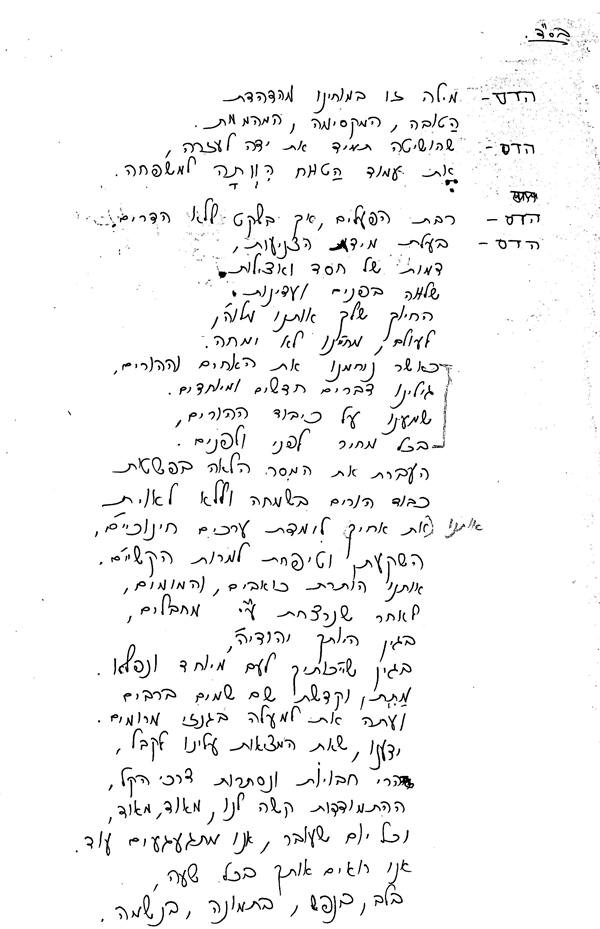 בס"ד.
הדס - מילה זו במוחינו מהדהדת
הטובה, המקסימה, המהממת.
הדס - שהושיטה תמיד את ידה לעזרה,
את עמוד הַטווח הִוְתָה למשפחה.
הדס - רבת הפעלים, אך בשקט ללא הדרים.
הדס - בעלת מידת הצניעות,
דמות של חסד ואצילות.
שלווה בפנים ועדינות.
החיוך שלך אותנו מלווה,
לעולם, מאיתנו לא ימחה.
כאשר ניחמנו את האחים וההורים,
גילינו דברים חדשים ומיוחדים.
שמענו על כיבוד ההורים,
בכל מחיר לפני ולפנים.
העברת את המסר הלאה בפשטות
כבוד הורים בשמחה וללא לאוית
אותנו (את אחיך לימדת ערכים חינוכיים,
השקעת וטיפחת למרות הקשיים.
אותנו הותרת כואבים, והמומים,
לאחר שנרצחת ע"י מחבלים,
בגין היותך יהודיה,
בגין שייכותיך לעם מיוחד ונפלא.
מַתְת, וקדשת שם שמים ברבים
ועתה את למעלה בגנזי מרומים.
ידענו, שאת המצאות עלינו לקבל,
הרי חבויות ונסתרות דרכי הקל,
ההתמודדות קשה לנו, מאוד, מאוד,
וכל יום שעובר, אנו מתגעגעים עוד.
אנו רואים אותך בכל שעה,
בלב, בנפש, בתמונה, בנשמה.